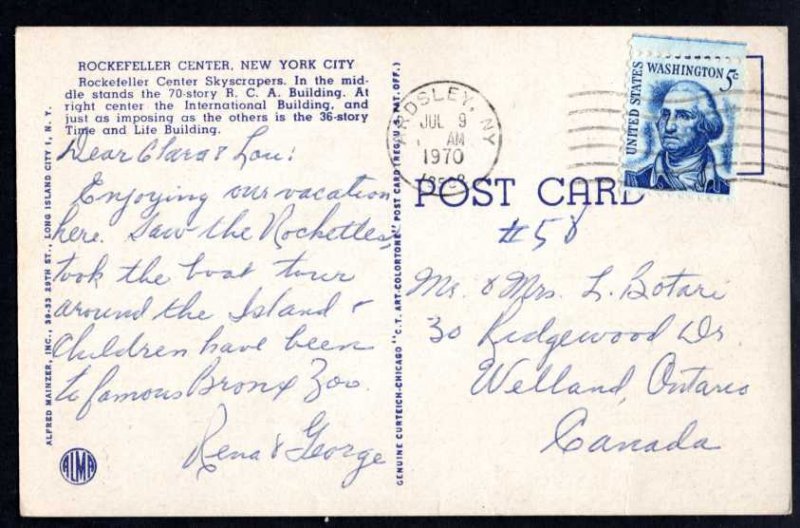 ROCKEFELLER CENTER, NEW YORK CITY
Rockefeller Center Skyscrapers. In the mid-
dle stands the 70-story R. C. A. Building. At
right center the International Building, and
just as imposing as the others is the 36-story
Time and Life Building.
Dear Clara & Lou:
Enjoying our vacation
here. Saw the Rockettes,
took the boat tour
around the Island &
Children have been
to famous Bronx Zoo.
Rena & George
ALFRED MAINZER, INC., 39-33 29TH ST., LONG ISLAND CITY 1, N. Y.
ALMA
GENUINE CURTEICH-CHICAGO "C.T. ART-COLORTONE" POST CARD (REG. U.S. PAT. OFF.)
RDSLEY, NY
JUL 9
AM
1970
UNITED STATES
WASHINGTON 5c
POST CARD
#58
Mr. & Mrs. L. Botari
30 Ridgewood Dr.
Welland, Ontario
Canada